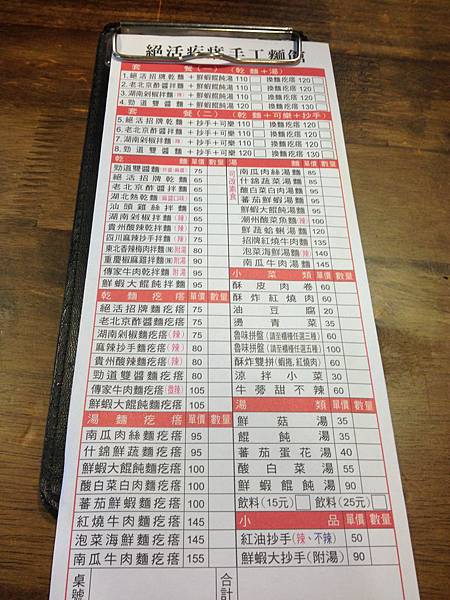 絕活疙瘩手工麵館
套 餐(一) (乾麵+湯)
1.絕活招牌乾麵+鮮蝦餛飩湯 110 換麵疙瘩 120
2.老北京酢醬麵+鮮蝦餛飩湯 110 換麵疙瘩 120
3.湖南剁椒拌麵 辣+鮮蝦餛飩湯 110 換麵疙瘩 120
4.勁道雙醬麵+鮮蝦餛飩湯 120 換麵疙瘩 130
套 餐(二) (乾麵+可樂+抄手)
5.絕活招牌乾麵+抄手+可樂 110 換麵疙瘩 120
6.老北京酢醬麵+抄手+可樂 110 換麵疙瘩 120
7.湖南剁椒拌麵 辣+抄手+可樂 110 換麵疙瘩 120
8.勁道雙醬麵+抄手+可樂 120 換麵疙瘩 130
乾 麵 單價 數量
勁道雙醬麵 75
絕活招牌乾麵 65
老北京酢醬拌麵 65
湖北熱乾麵 65
汕頭雞絲拌麵 65
湖南剁椒拌麵(辣) 65
貴州酸辣乾麵(辣) 70
四川麻辣抄手拌麵(辣) 75
東北香辣梅肉拌麵(辣)附湯 90
重慶椒麻雞拌麵(辣)附湯 90
傳家牛肉乾拌麵 附湯 95
鮮蝦大餛飩拌麵 90
乾麵疙瘩 單價 數量
絕活招牌疙瘩 75
老北京酢醬疙瘩 75
湖南剁椒麵疙瘩(辣) 75
麻辣抄手麵疙瘩(辣) 80
貴州酸辣麵疙瘩(辣) 75
勁道雙醬麵疙瘩 80
傳家牛肉麵疙瘩(微辣) 105
鮮蝦大餛飩麵疙瘩 105
湯麵疙瘩 單價 數量
南瓜肉絲麵疙瘩 95
什錦鮮蔬麵疙瘩 95
鮮蝦大餛飩麵疙瘩 100
酸白菜白肉麵疙瘩 100
蕃茄鮮蝦麵疙瘩 100
紅燒牛肉麵疙瘩 145
泡菜海鮮麵疙瘩 145
南瓜牛肉麵疙瘩 155
桌號
湯 麵 單價 數量
可改素食
南瓜肉絲湯麵 85
什錦蔬菜湯麵 85
酸白菜白肉湯麵 90
蕃茄鮮蝦湯麵 90
鮮蝦大餛飩湯麵 90
潮州酸菜魚麵(辣) 100
鮮蔬蛤蜊湯麵 120
招牌紅燒牛肉麵 135
泡菜海鮮湯麵(辣) 135
南瓜牛肉湯麵 145
小菜類 單價 數量
酥皮肉卷 60
酥炸紅燒肉 60
油豆腐 20
燙青菜 35
魯味拼盤(請至櫃檯任選三種) 60
魯味拼盤(請至櫃檯任選五種) 100
酥炸雙拼(蝦捲,紅燒肉) 60
涼拌小菜 30
牛蒡甜不辣 60
湯 類 單價 數量
鮮菇湯 35
餛飩湯 35
蕃茄蛋花湯 40
酸白菜湯 55
鮮蝦餛飩湯 90
飲料(15元) 飲料(25元)
小 品 單價 數量
紅油抄手(辣、不辣) 50
鮮蝦大抄手(附湯) 90
合計